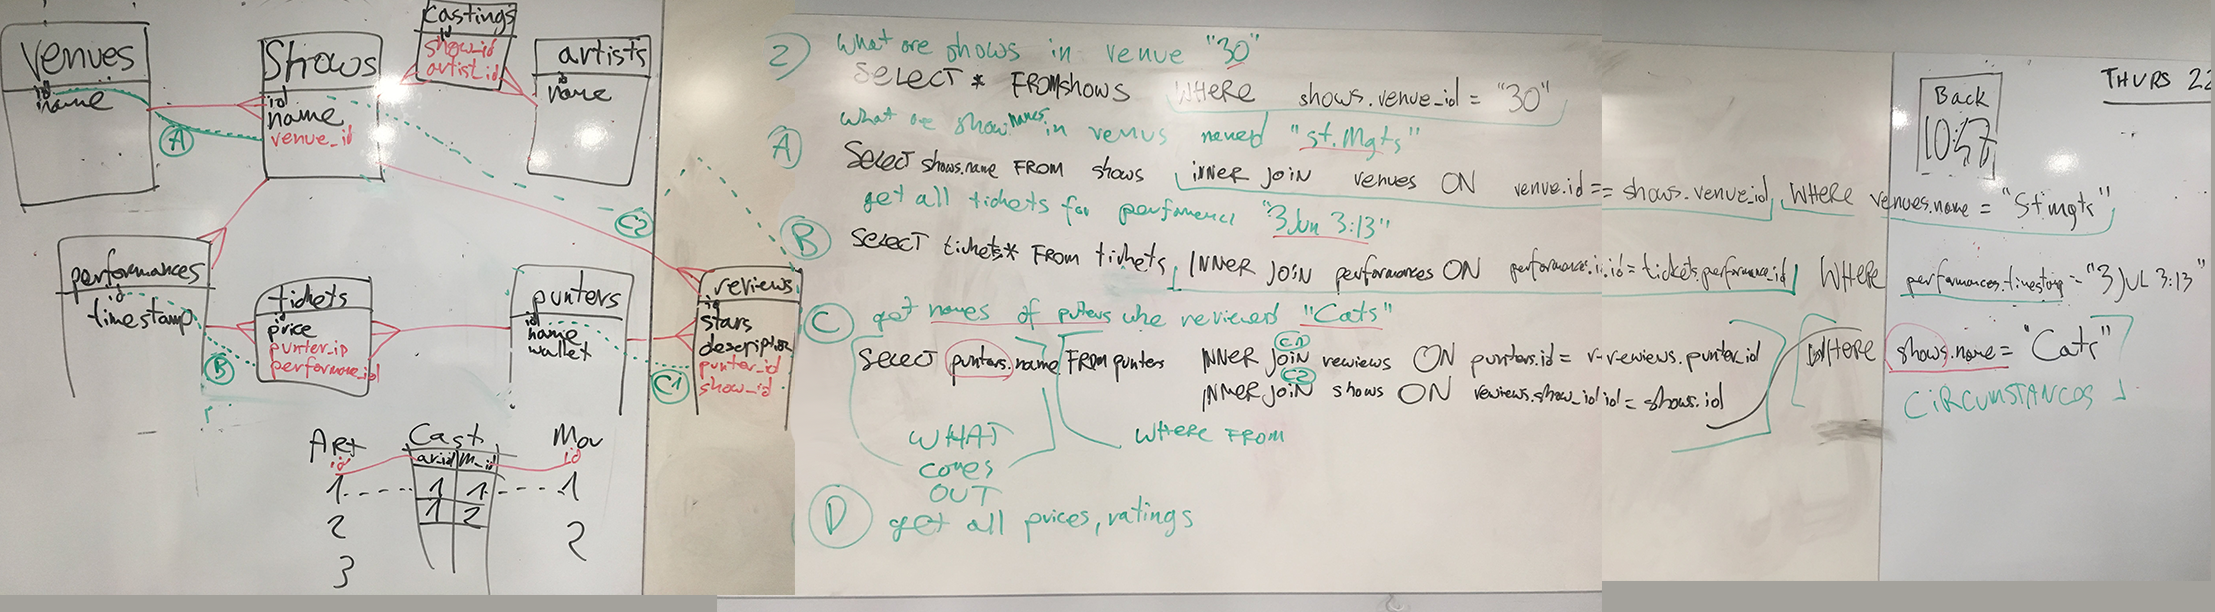 Venues
id
name
Shows
id
name
venue_id
Castings
id
show_id
artist_id
artists
id
name
A
C2
performances
id
timestamp
tickets
id
price
punter_ip
performance_id
punters
id
name
wallet
reviews
id
stars
description
punter_id
show_id
B
C1
Art
id
1
2
3
Cast
ar.id M_id
1 1
1 2
Mov
id
1
2
2) What are shows in venue "30"
SELECT * FROM shows WHERE shows.venue_id = "30"
A) What are show names in venus named "St.Mgts"
SELECT shows.name FROM shows INNER JOIN venues ON venue.id == shows.venue_id, WHERE venues.name = "St mgts"
B) get all tickets for performence "3Jun 3:13"
SELECT tickets* From tickets INNER JOIN performances ON performance.id = tickets.performance_id WHERE performances.timestamp = "3 JUL 3:13"
C) get names of puters who reviewed "Cats"
C1
SELECT punters.name FROM punters INNER JOIN rewiews ON punters.id = r-rewiews.punter_id WHERE shows.name = "Cats"
C2
INNER JOIN shows ON rewiews.show_id id = shows.id
CIRCUMSTANCES
WHAT
comes
OUT
WHERE FROM
D) get all prices, ratings
Back
10:47
THURS 22